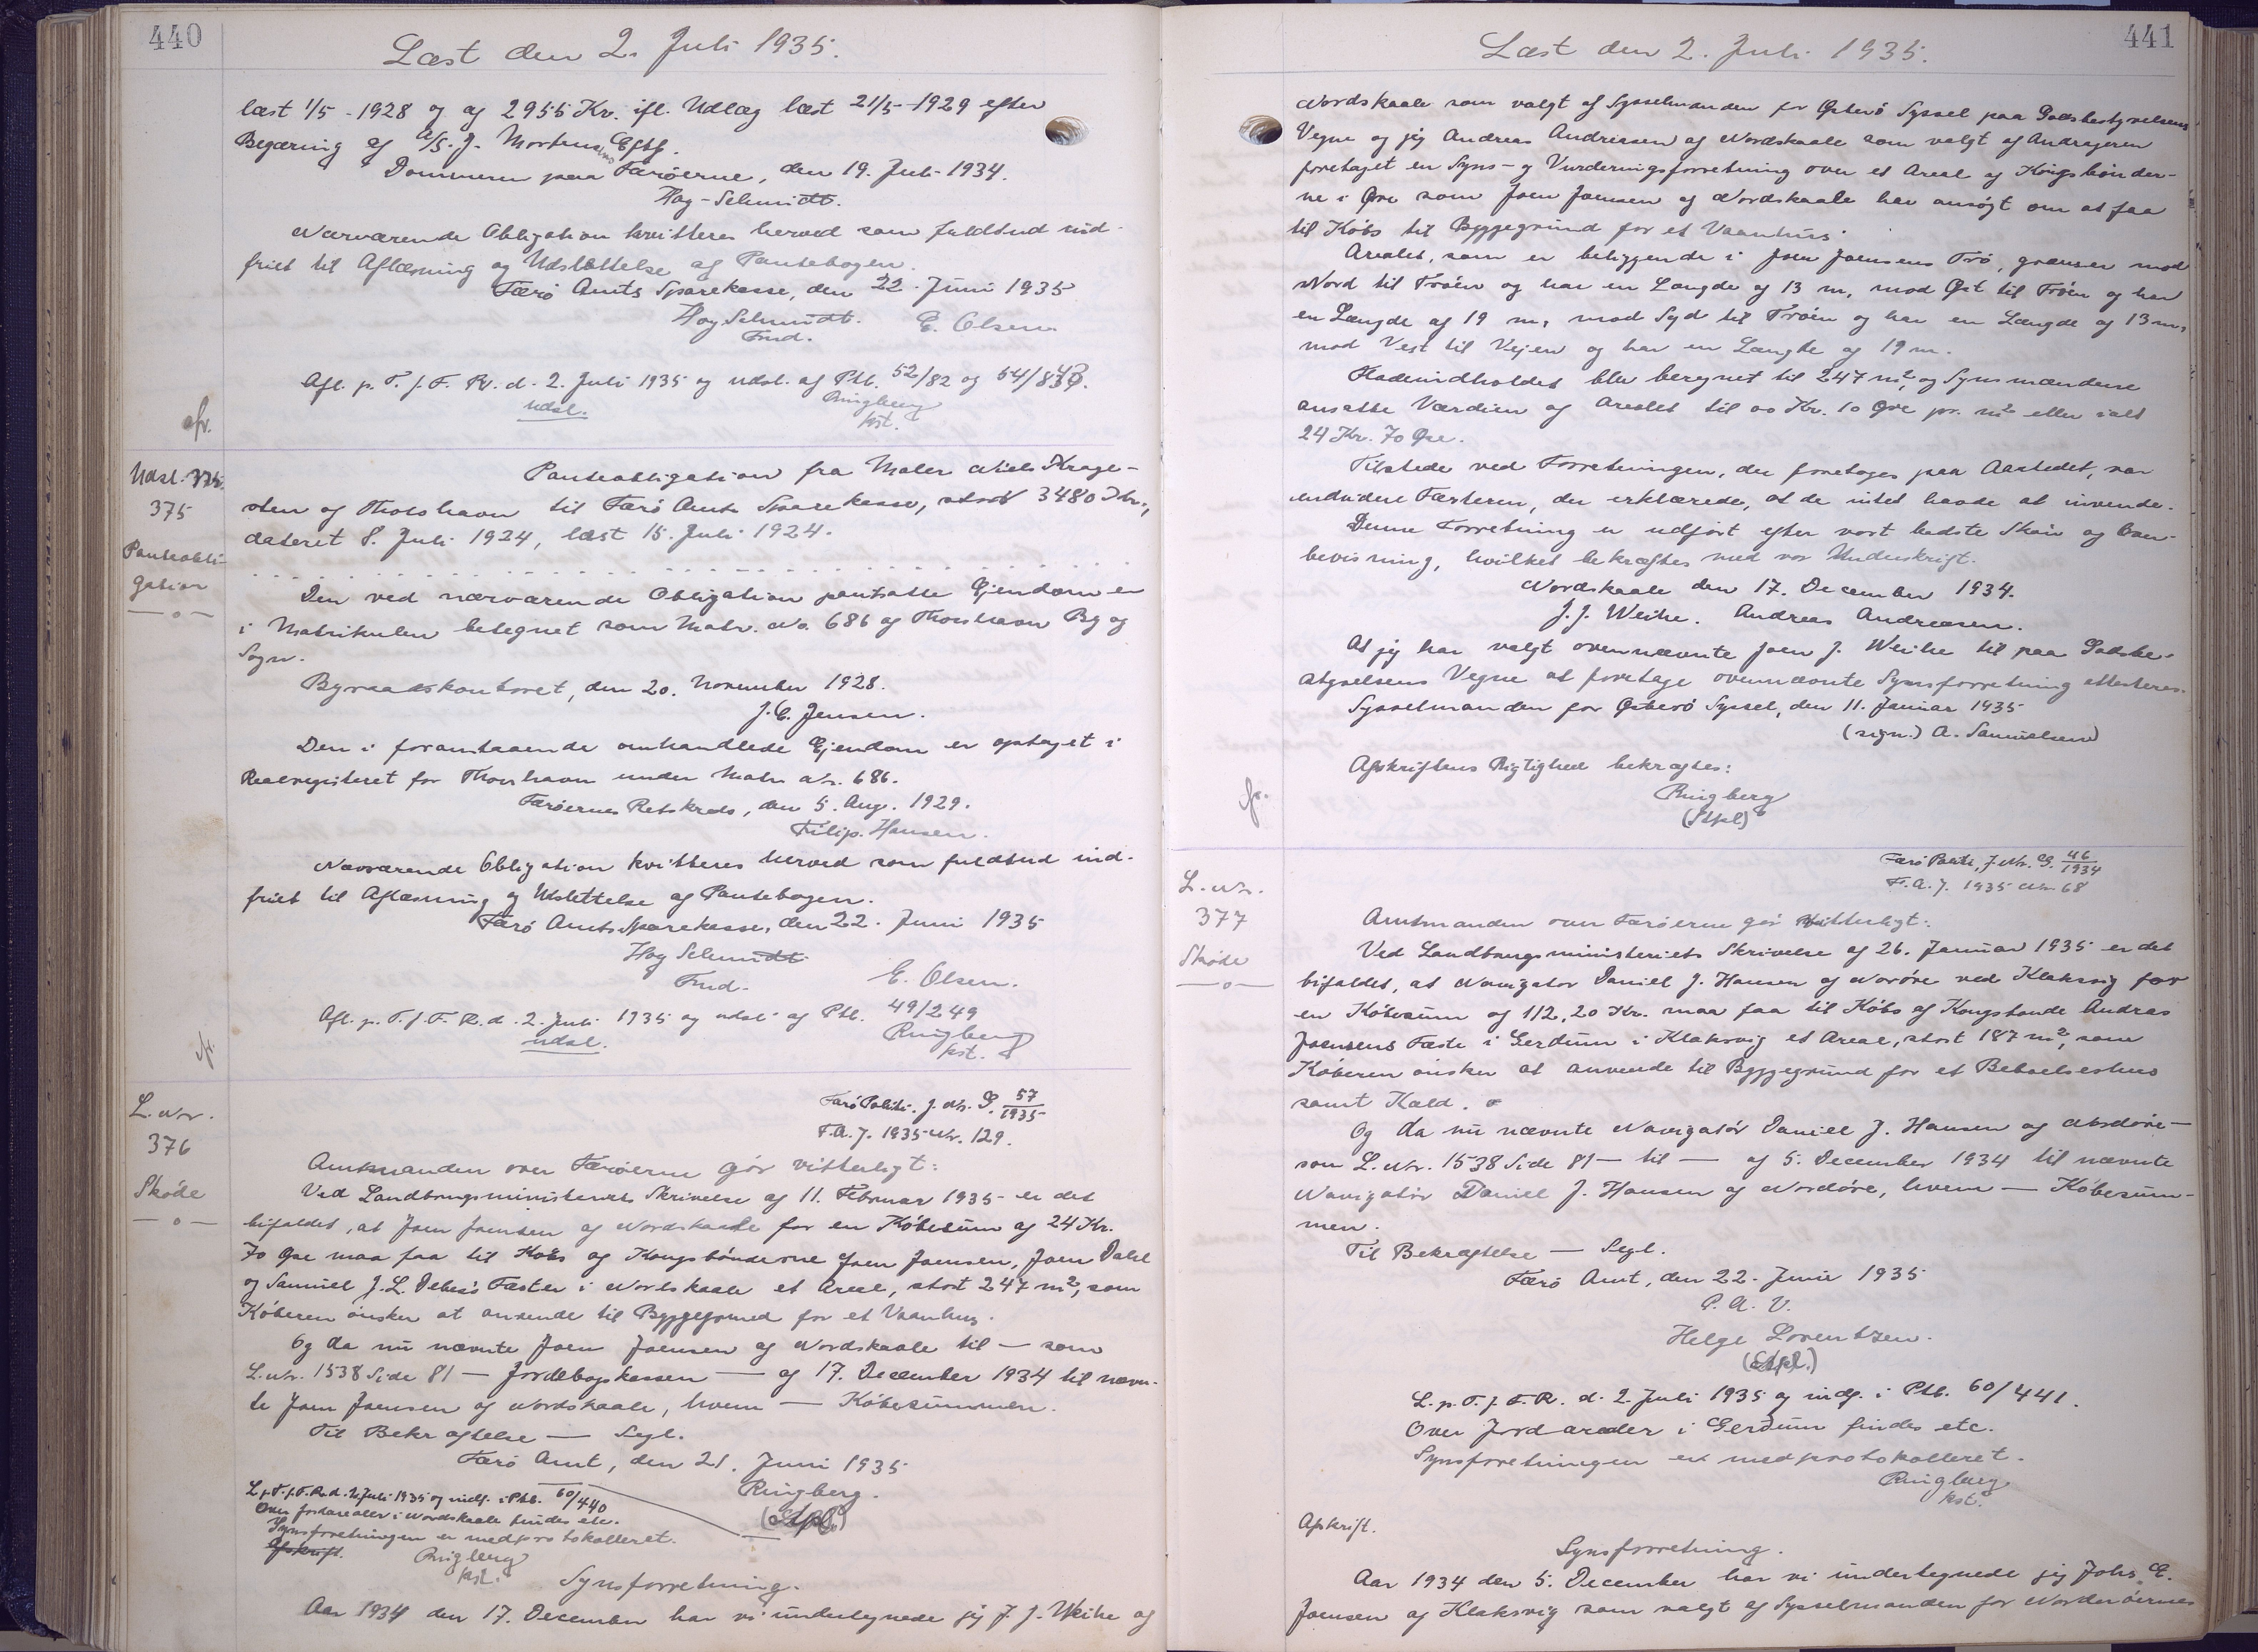 440
Læst den 2. Juli 1935.
læst 1/5 - 1928 og af 2955 Kr. ifl. Udlæg læst 21/5 - 1929 efter
Begæring af A/S. J. Mortensens Eftf.
Dommeren paa Færøerne, den 19. Juli 1934.
Høg-Schmidt.
Nærværende Obligation kvitteres herved som fuldtud ind-
friet til Aflæsning og Udslettelse af Pantebogen.
Færø Amts Sparekasse, den 22. Juni 1935
Høg Schmidt. E. Olsen
Fmd.
Afl. p. T. f. F. R. d. 2. Juli 1935 og udsl. af Ptb. 52/82 og 54/
udsl.
Ringberg
kst.
afr.
Udsl. 375.
375
Panteobli-
gation
Panteobligation fra Maler Niels Krage-
sten af Thorshavn til Færø Amts Sparekasse, stort 3480 Kr.,
dateret 8. Juli 1924, læst 15. Juli 1924.
Den ved nærværende Obligation pantsatte Ejendom er
i Matrikulen betegnet som Matr. No. 686 af Thorshavn By og
Sogn.
Byraadskontoret, den 20. November 1928.
J. C. Jensen.
Den i foranstaaende omhandlede Ejendom er optaget i
Realregisteret for Thorshavn under Matr. Nr. 686.
Færøernes Retskreds, den 5. Aug. 1929.
Filip. Hansen.
Nærværende Obligation kvitteres herved som fuldtud ind-
friet til Aflæsning og Udslettelse af Pantebogen.
Færø Amts Sparekasse, den 22. Juni 1935
Høg Schmidt
Fmd. E. Olsen.
Afl. p. T. f. F. R. d. 2. Juli 1935 og udsl. af Ptb. 49/249
udsl.
Ringberg
kst.
L. Nr.
376
Skøde
Færø Politi. J. Nr. G. 57/1935
F.A.J. 1935 Nr. 129.
Amtmanden over Færøerne gør vitterligt:
Ved Landbrugsministeriets Skrivelse af 11. Februar 1935 er det
bifaldet, at Joen Joensen af Nordskaale for en Købesum af 24 Kr.
70 Øre maa faa til Købs af Kongsbønderne Joen Joensen, Joen Dahl
og Samuel J. L. Debes's Fæster i Nordskaale et Areal, stort 247 m², som
Køberen ønsker at anvende til Byggegrund for et Vaanhus.
Og da nu nævnte Joen Joensen af Nordskaale til — som
L. Nr. 1538 Side 81 — Jordebogskassen — af 17. December 1934 til nævn-
te Joen Joensen af Nordskaale, hvem — Købesummen.
Til Bekræftelse — Segl.
Færø Amt, den 21. Juni 1935
Ringberg.
(Stpl.)
L. p. T. f. F. R. d. 2. Juli 1935 og indf. i Ptb. 60/440
Over Jordarealer i Nordskaale findes etc.
Synsforretningen er medprotokolleret.
Afskrift.
Ringberg
kst.
Synsforretning.
Aar 1934 den 17. December har vi undertegnede jeg J. J. Weihe af
441
Læst den 2. Juli 1935.
Nordskaale som valgt af Sysselmanden for Østerø Syssel paa Godsbestyrelsens
Vegne og jeg Andreas Andreasen af Nordskaale som valgt af Andrageren
foretaget en Syns- og Vurderingsforretning over et Areal af Kongsbønder-
ne i Øre som Joen Joensen af Nordskaale har ansøgt om at faa
til Købs til Byggegrund for et Vaanhus.
Arealet, som er beliggende i Joen Joensens Trø, grænser mod
Nord til Trøen og har en Længde af 13 m, mod Øst til Trøen og har
en Længde af 19 m, mod Syd til Trøen og har en Længde af 13 m,
mod Vest til Vejen og har en Længde af 19 m.
Fladeindholdet blev beregnet til 247 m², og Synsmændene
ansatte Værdien af Arealet til 00 Kr. 10 Øre pr. m² eller ialt
24 Kr. 70 Øre.
Tilstede ved Forretningen, der foretoges paa Aastedet, var
endvidere Fæsteren, der erklærede, at de intet havde at invende.
Denne Forretning er udført efter vort bedste Skøn og Over-
bevisning, hvilket bekræftes med vor Underskrift.
Nordskaale den 17. December 1934.
J. J. Weihe. Andreas Andreasen.
At jeg har valgt ovennævnte Joen J. Weihe til paa Godsbe-
styrelsens Vegne at foretage ovennævnte Synsforretning attesteres.
Sysselmanden for Østerø Syssel, den 11. Januar 1935
(sign.) A. Samuelsen
Afskriftens Rigtighed bekræftes:
Ringberg
(Stpl)
L. Nr.
377
Skøde
Færø Politi, J. Nr. G. 46/1934
F. A. J. 1935 Nr. 68
Amtmanden over Færøerne gør vitterligt:
Ved Landbrugsministeriets Skrivelse af 26. Januar 1935 er det
bifaldet, at Navigatør Daniel J. Hansen af Norøre ved Klaksvig for
en Købesum af 112,20 Kr. maa faa til Købs af Kongsbonde Andras
Joensens Fæste i Gerdum i Klaksvig et Areal, stort 187 m², som
Køberen ønsker at anvende til Byggegrund for et Beboelseshus
samt Kald.
Og da nu nævnte Navigatør Daniel J. Hansen af Nordøre —
som L. Nr. 1538 Side 81 — til — af 5. December 1934 til nævnte
Navigatør Daniel J. Hansen af Nordøre, hvem — Købesum-
men.
Til Bekræftelse — Segl.
Færø Amt, den 22. Juni 1935
P. A. V.
Helge Lorentzen.
(Stpl.)
L. p. T. f. F. R. d. 2. Juli 1935 og indf. i Ptb. 60/441.
Over Jordarealer i Gerdum findes etc.
Synsforretningen er medprotokolleret.
Ringberg
kst.
Afskrift.
Synsforretning.
Aar 1934 den 5. December har vi undertegnede jeg Johs. E.
Joensen af Klaksvig som valgt af Sysselmanden for Norderøernes